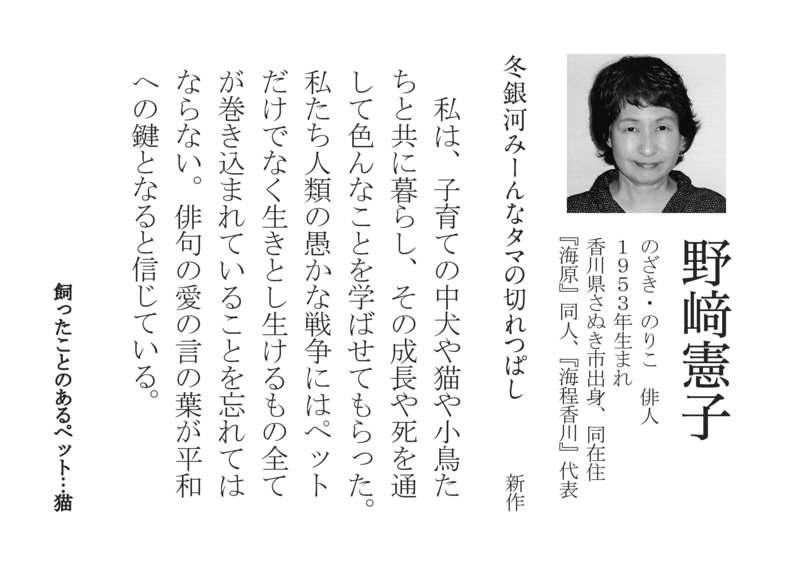 野﨑憲子
のざき・のりこ　俳人
1953年生まれ
香川県さぬき市出身、同在住
『海原』同人、『海程香川』代表
冬銀河みーんなタマの切れっぱし　新作
私は、子育ての中犬や猫や小鳥た
ちと共に暮らし、その成長や死を通
して色んなことを学ばせてもらった。
私たち人類の愚かな戦争にはペット
だけでなく生きとし生けるもの全て
が巻き込まれていることを忘れては
ならない。俳句の愛の言の葉が平和
への鍵となると信じている。
飼ったことのあるペット…猫